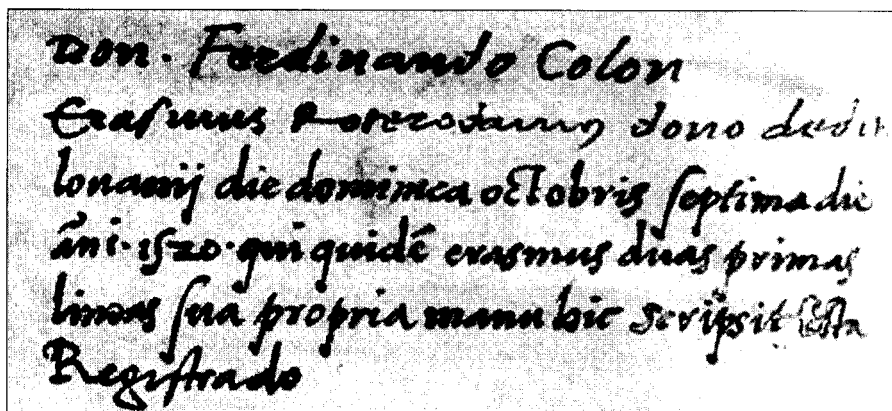 Don. Ferdinando Colon
Erasmus Roterodamus dono dedit
lovanij die dominica octobris septima die
āni. 1520. qui quidē erasmus duas primas
lineas sua propria manu hic scripsit Esta
Registrado